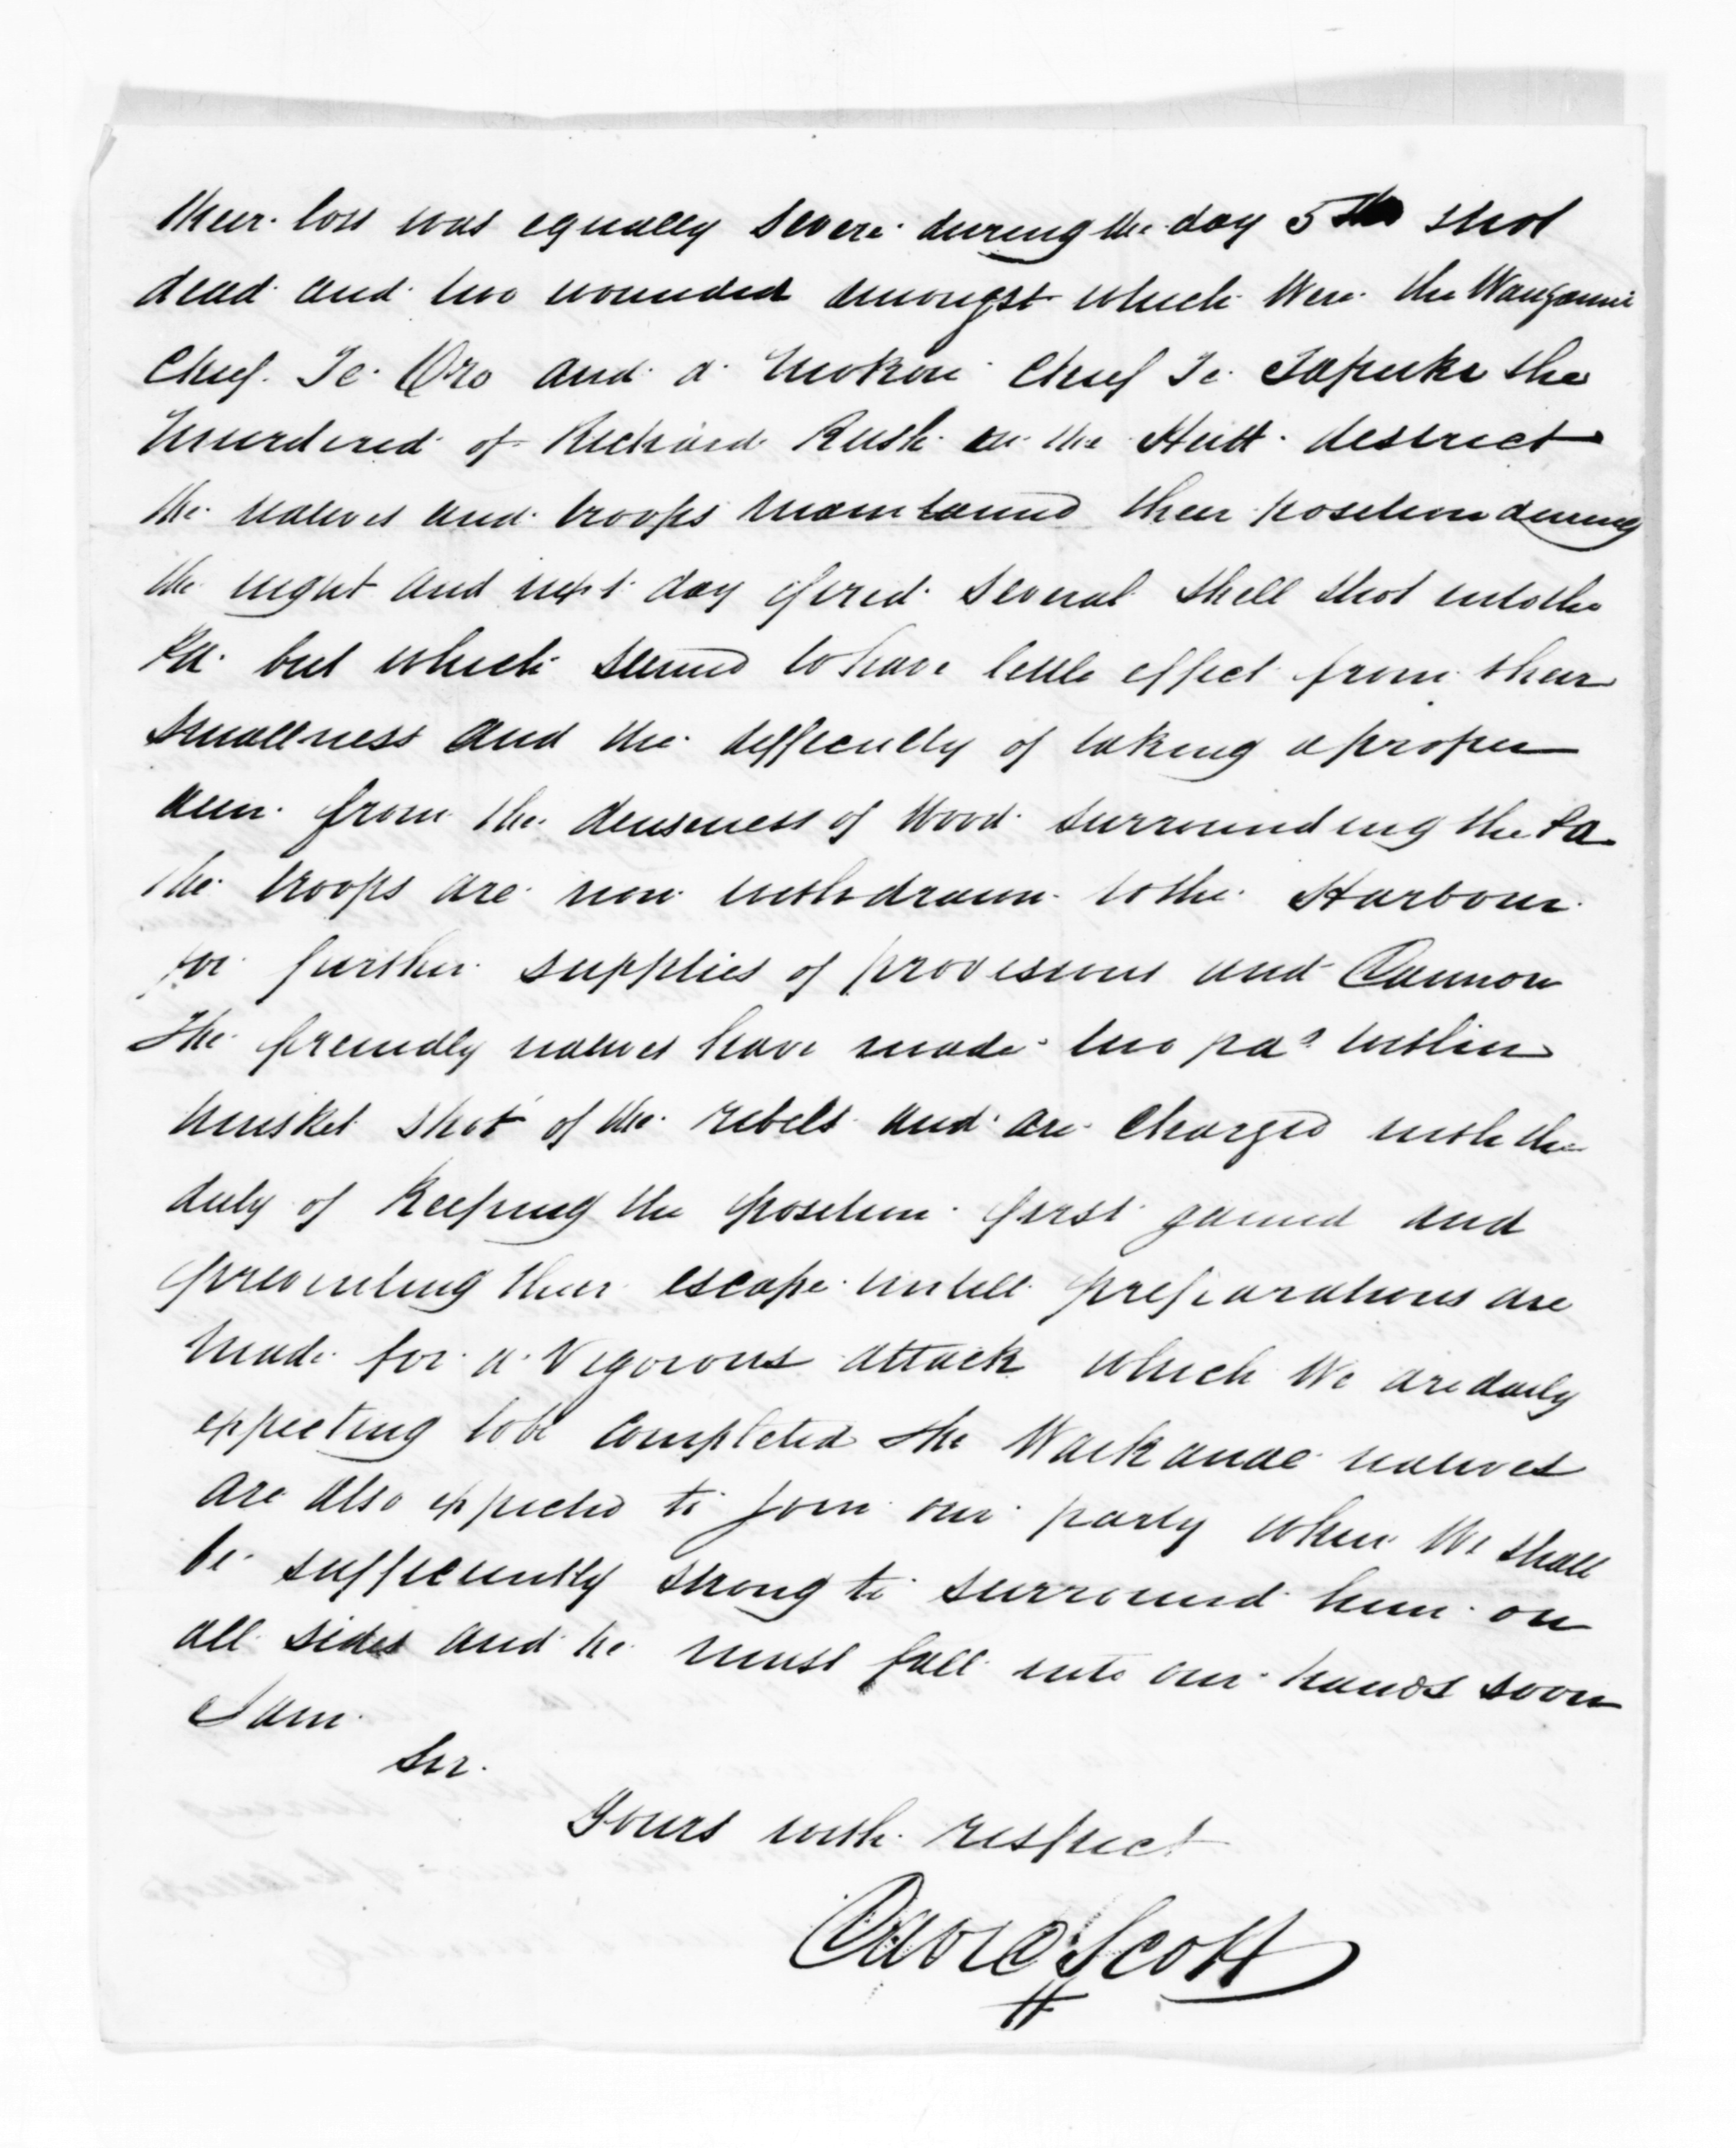 their loss was equally severe during the day 5 shot
dead and two wounded amongst which were the Wanganui
Chief Te Oro and a Chief Te Tapuke the
Murdered of Richard Rush in the Hutt destrict
the natives and troops maintained their position during
the night and next day fired several shell shot into the
Pa but which seemed to have little effect from their
smallness and the difficulty of taking a proper
aim from the denseness of Wood surrounding the Pa
the troops are now withdrawn to the Harbour
for further supplies of provisions and Cannon
The friendly natives have made two pas within
musket shot of the rebels and are charged with the
duty of Keeping the position first gained and
preventing their escape untill preparations are
made for a Vigorous attack which We are daily
expecting to be completed the Waikanae natives
are also expected to join our party when We shall
be sufficiently strong to surround him on
all sides and he must fall into our hands soon
I am
Sir
Yours with respect
David Scott